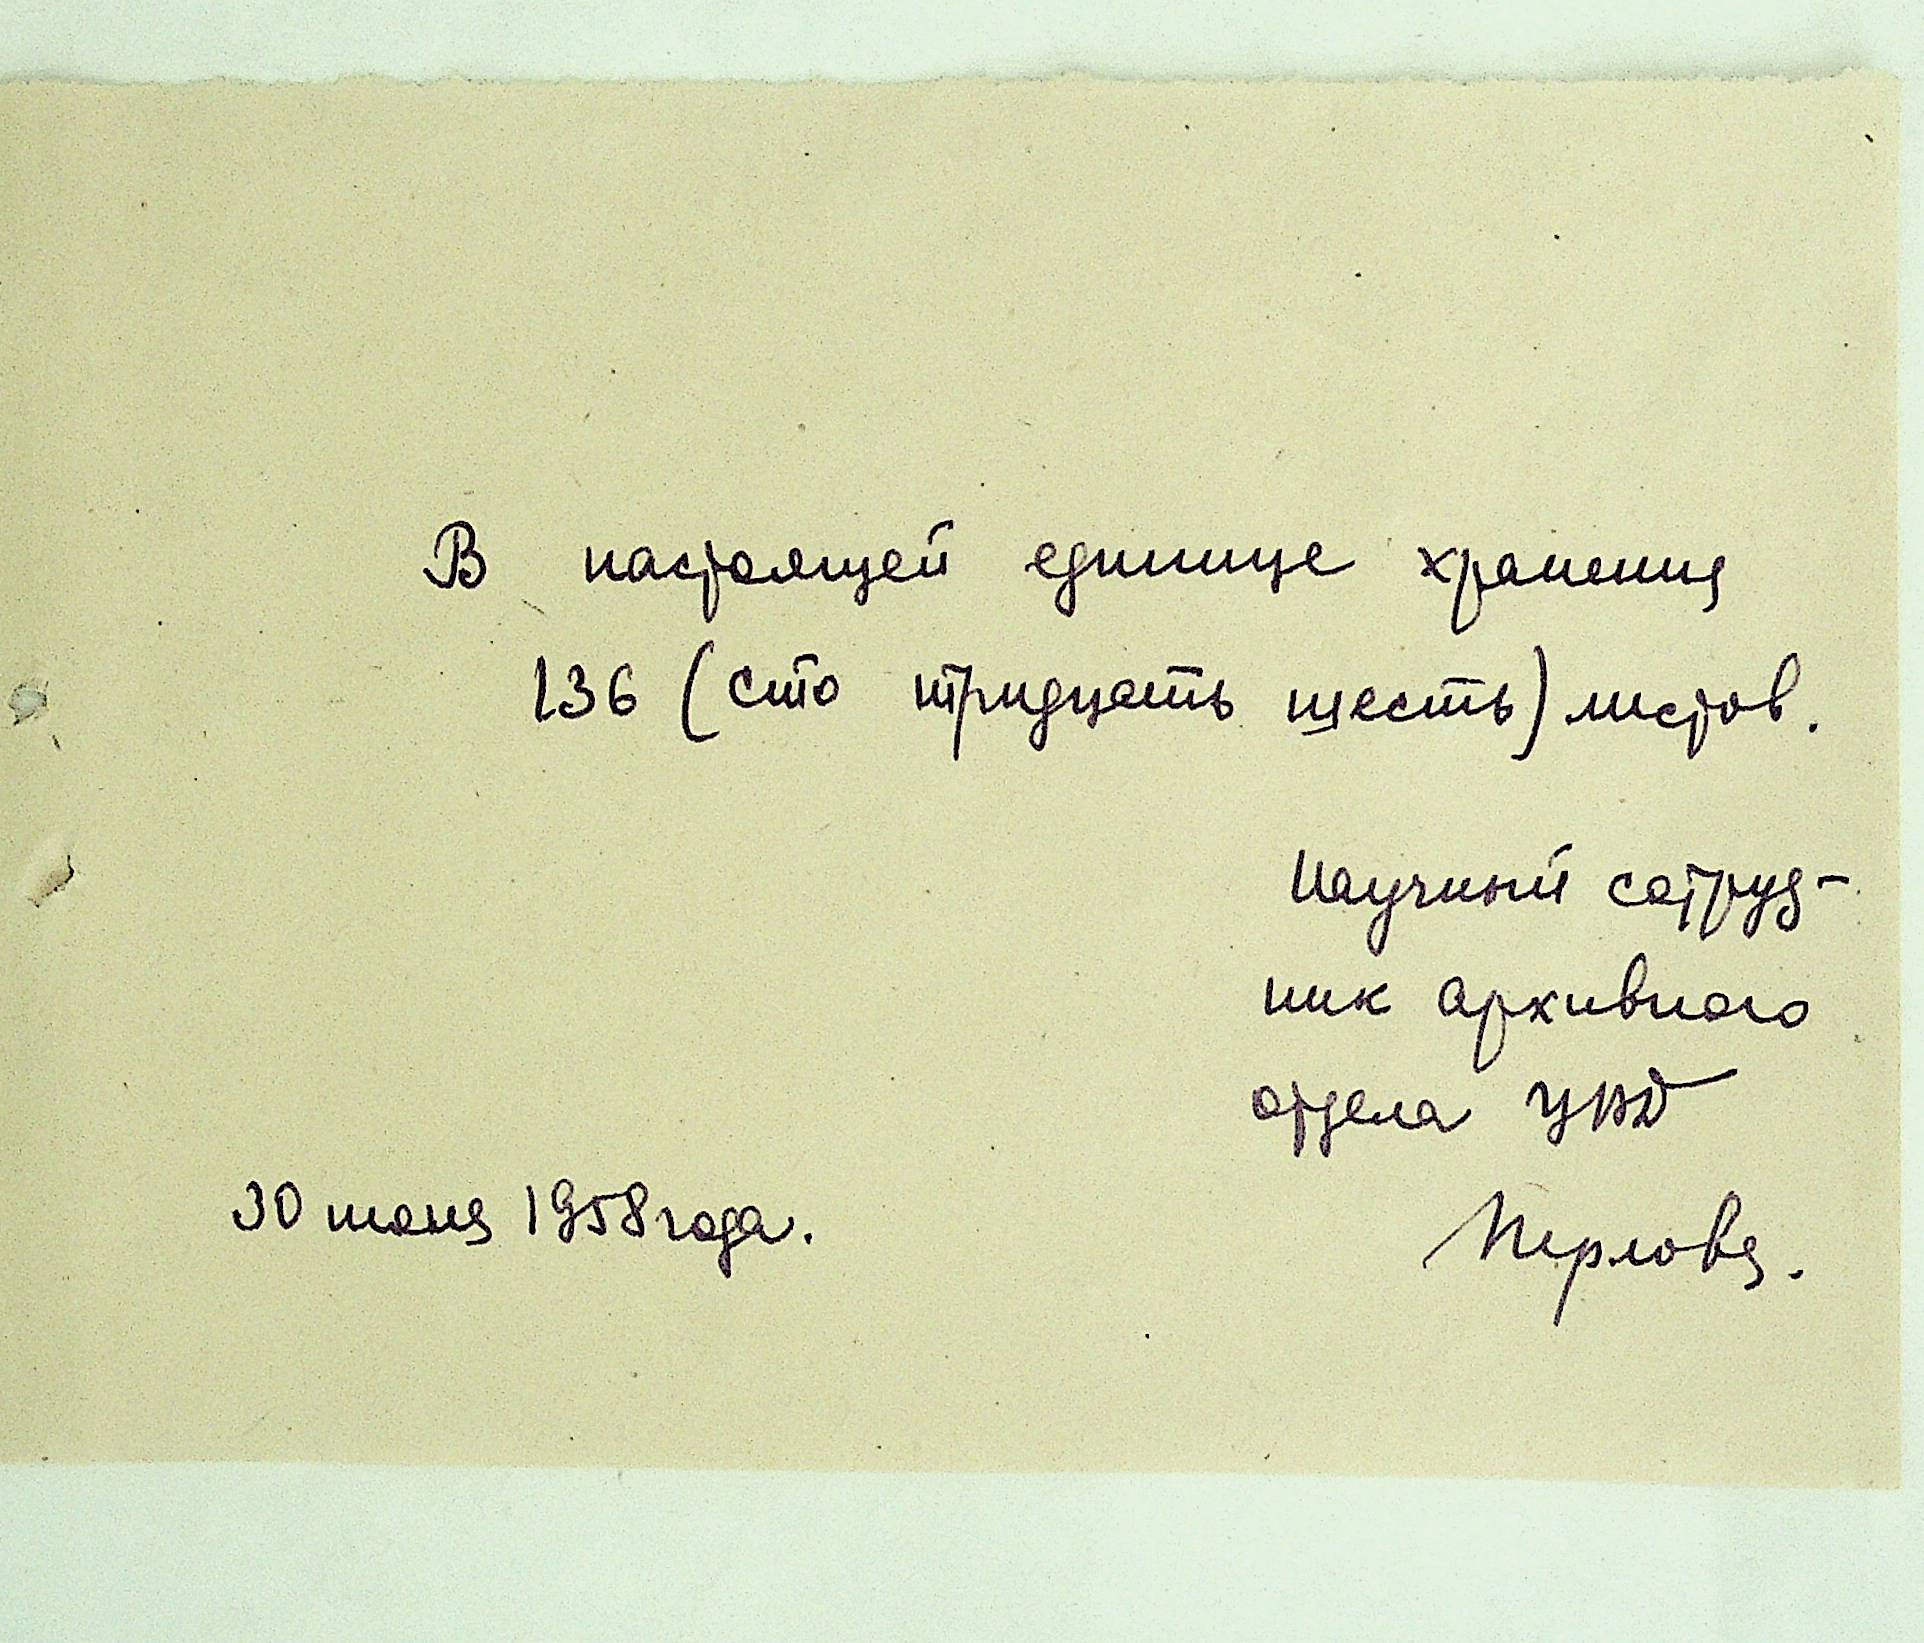 В настоящей единице хранения
136 (сто тридцать шесть) листов.
Научный сотруд-
ник архивного
отдела УВД
30 июня 1958 года.
Перлова.